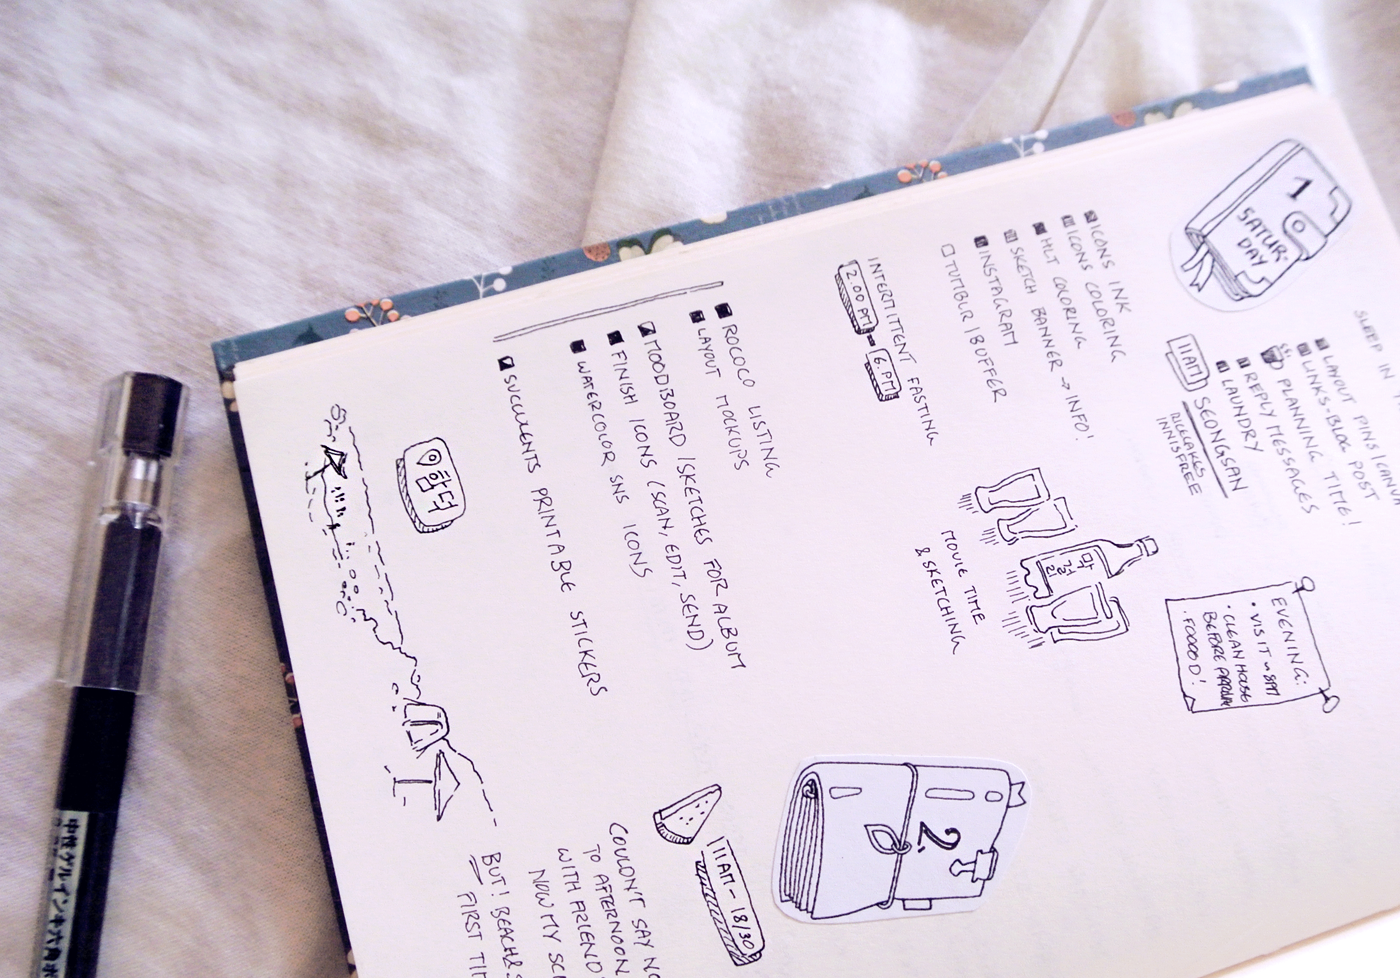 1
SATUR-
DAY
SLEEP IN
LAYOUT PINS/CANVA
LINKS-BLOG POST
PLANNING TIME!
REPLY MESSAGES
LAUNDRY
11AM
SEONGSAN
RICECAKES
INNISFREE
ICONS INK
ICONS COLORING
HLT COLORING
SKETCH BANNER → INFO!
INSTAGRAM
TUMBLR/BUFFER
INTERMITTENT FASTING
2.00 PM - 6.PM
EVENING:
• VISIT ~ 8PM
• CLEAN HOUSE
BEFORE
• FOOOOD!
막걸리
MOVIE TIME
& SKETCHING
ROCO LISTING
LAYOUT MOCKUPS
MOODBOARD/SKETCHES FOR ALBUM
FINISH ICONS (SCAN, EDIT, SEND)
WATERCOLOR SNS ICONS
SUCCULENTS PRINTABLE STICKERS
함덕
2.
11AM - 18/30
COULDN'T SAY NO
TO AFTERNOON
WITH A FRIEND
NOW MY
BUT! BEACH &
FIRST
中性ゲルインキ六角ボ